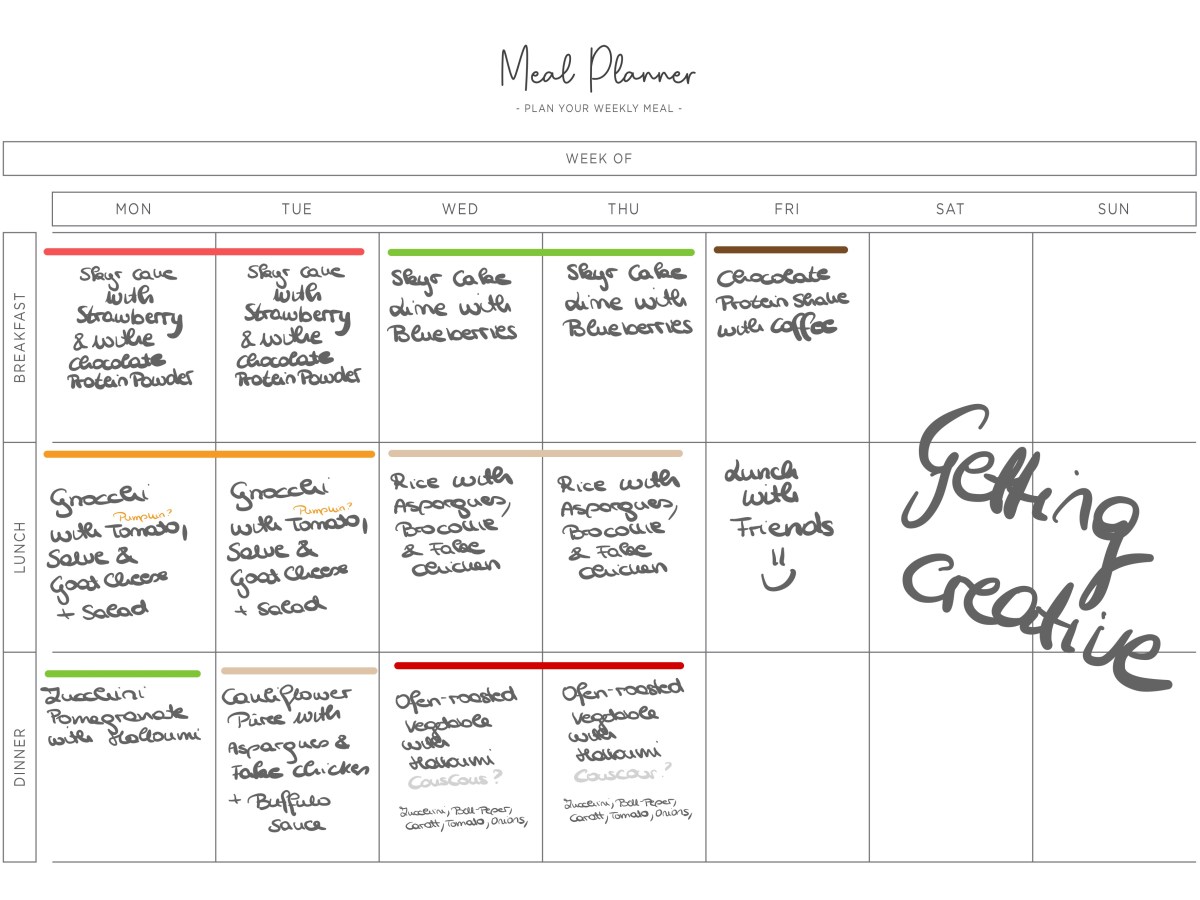 Meal Planner
- PLAN YOUR WEEKLY MEAL -
WEEK OF
MON
TUE
WED
THU
FRI
SAT
SUN
BREAKFAST
Skyr
with
Strawberry
&
Chocolate
Protein Powder
Skyr
with
Strawberry
&
Chocolate
Protein Powder
Skyr Cake
Lime with
Blueberries
Skyr Cake
Lime with
Blueberries
Chocolate
Protein Shake
with Coffee
LUNCH
Gnocchi
Pumpkin?
with Tomato,
&
Goat Cheese
+ Salad
Gnocchi
Pumpkin?
with Tomato,
&
Goat Cheese
+ Salad
Rice with
Aspargues,
& Fake
Chicken
Rice with
Aspargues,
& Fake
Chicken
Lunch
with
Friends
Getting
Creative
DINNER
Zucchini
Pomegranate
with Halloumi
Cauliflower
Püree with
Aspargues &
Fake Chicken
+ Buffulo
Sauce
Ofen-roasted
Vegetable
with
Halloumi
CousCous?
Zucchini, Bell-Peper,
Carott, Tomato, Onions,
Ofen-roasted
Vegetable
with
Halloumi
Zucchini, Bell-Peper,
Carott, Tomato, Onions,